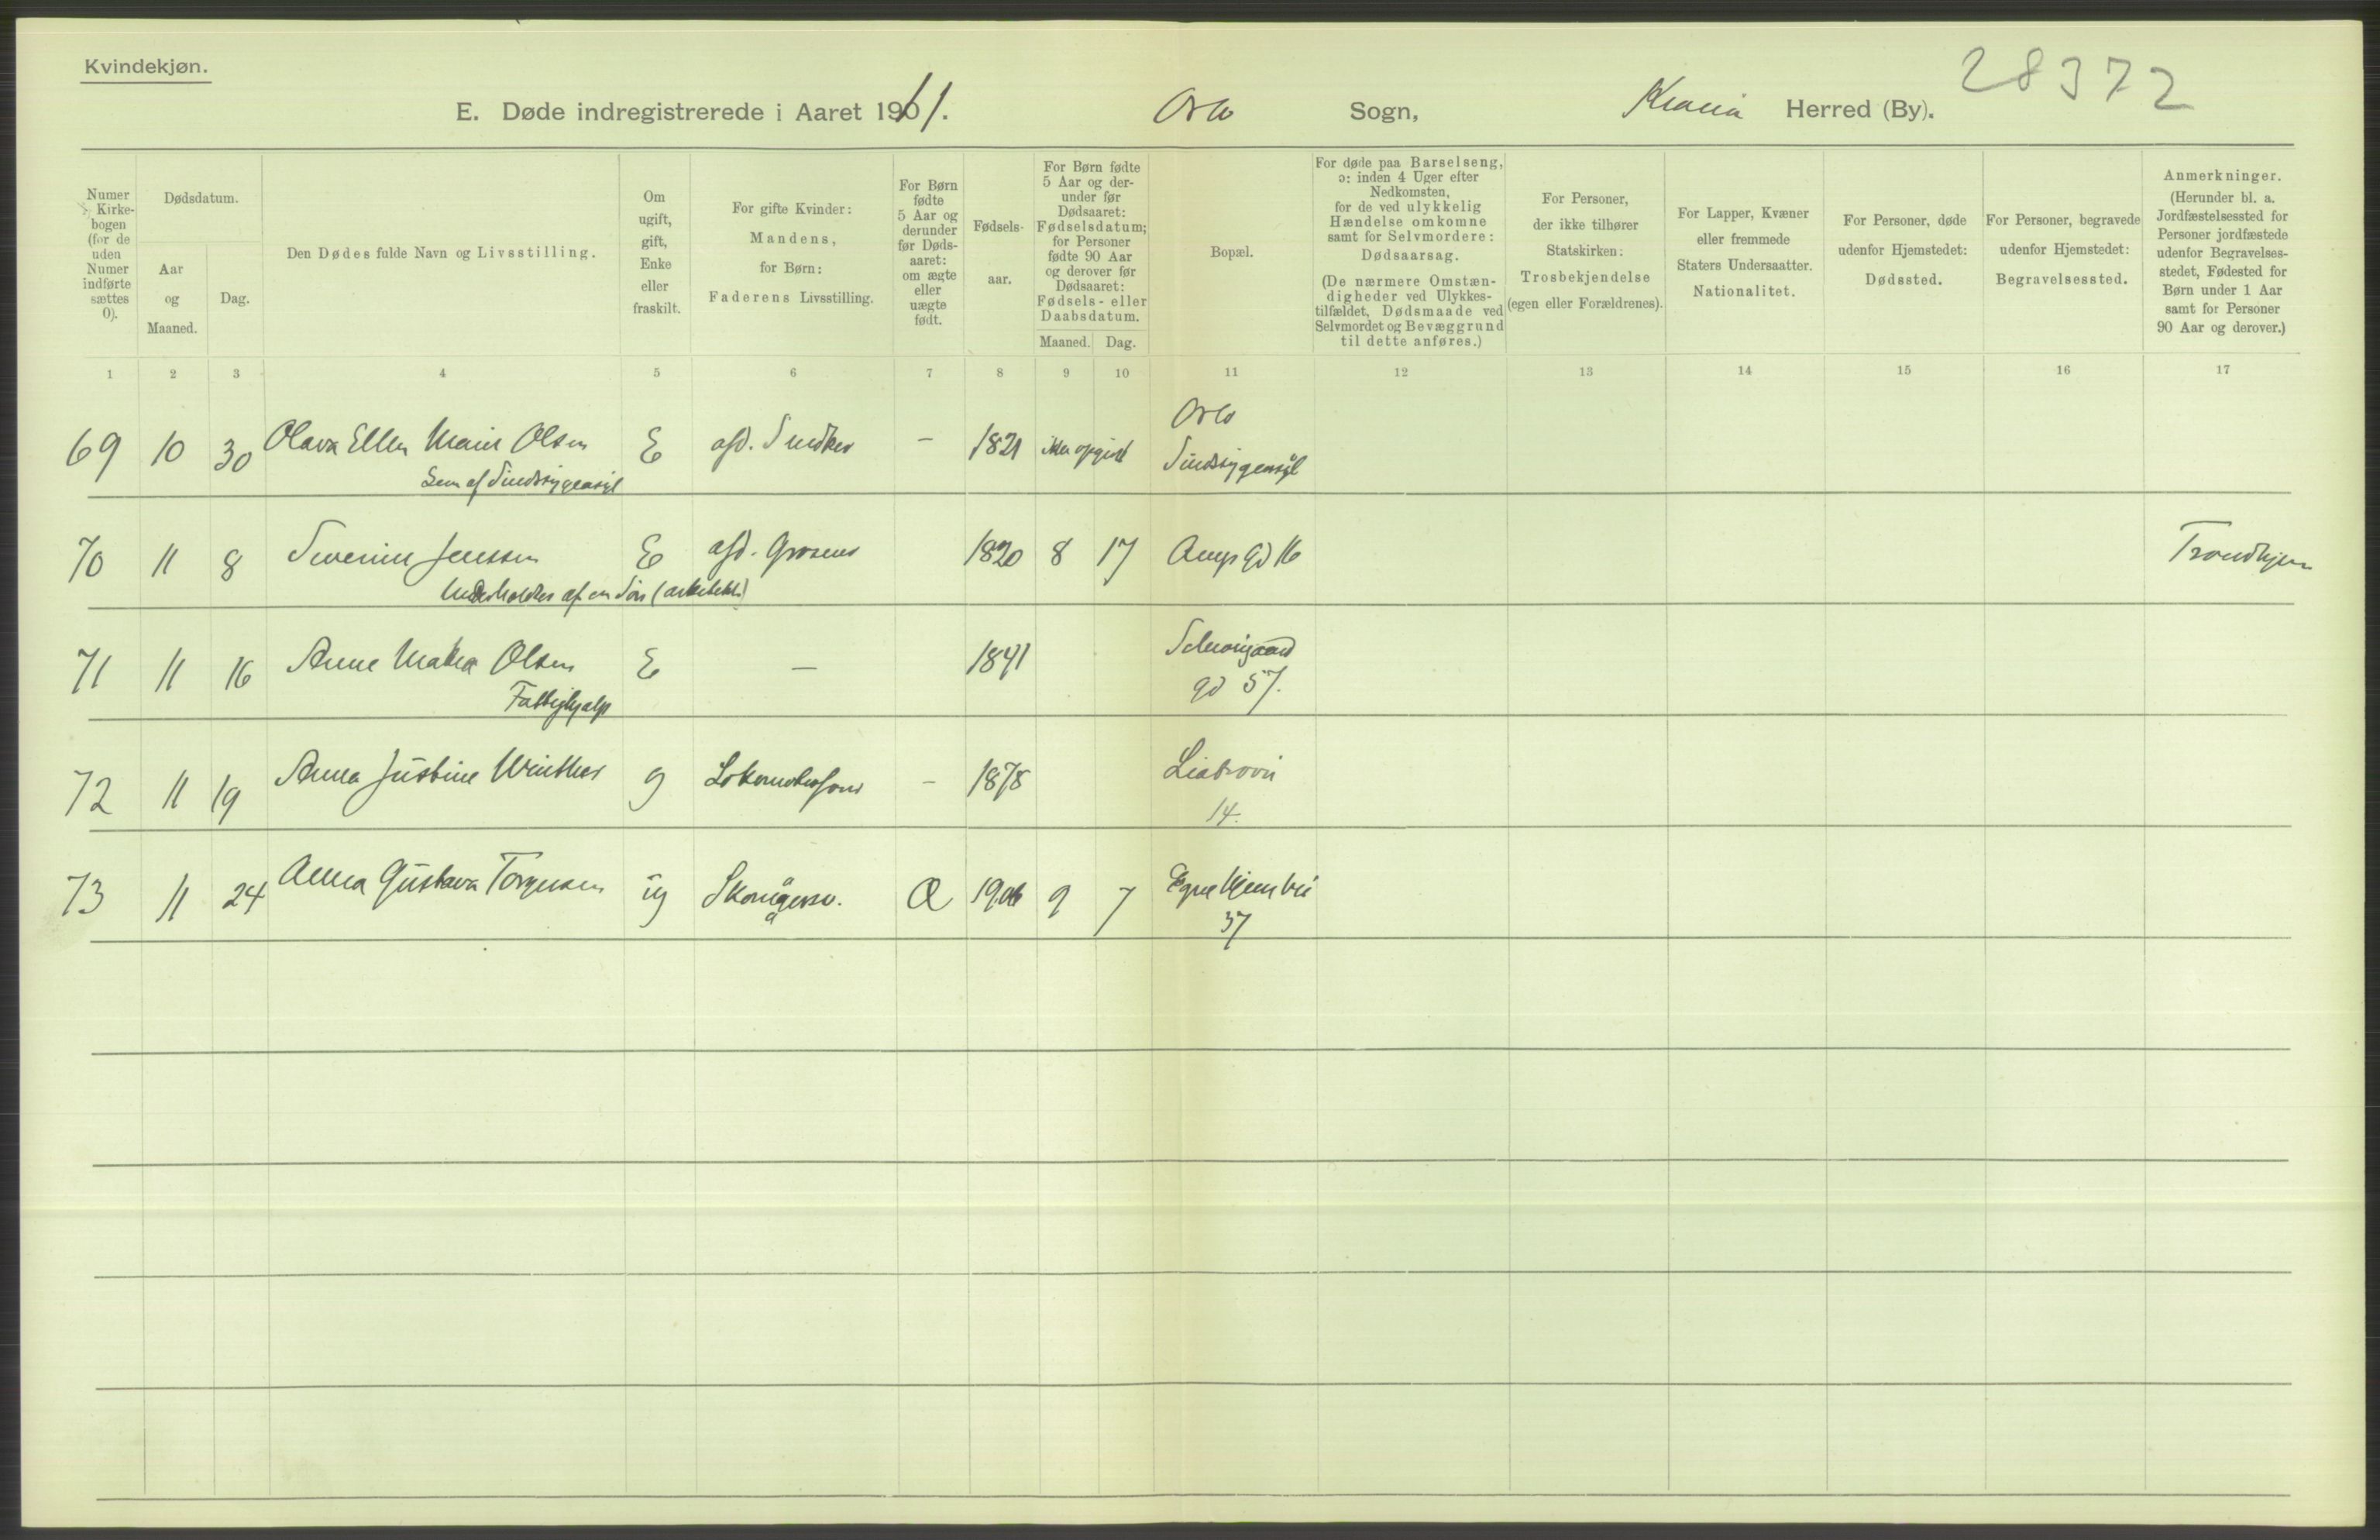 Kvindekjøn.
28372
E. Døde indregistrerede i Aaret 1911. Oslo Sogn, Kr.ania Herred (By).
Numer i Kirkebogen (for de uden Numer indførte sættes 0).
Dødsdatum.
Aar og Maaned.
Dag.
Den Dødes fulde Navn og Livsstilling.
Om ugift, gift, Enke eller fraskilt.
For gifte Kvinder: Mandens, for Børn: Faderens Livsstilling.
For Børn fødte 5 Aar og derunder før Dødsaaret: om ægte eller uægte født.
Fødselsaar.
For Børn fødte 5 Aar og derunder før Dødsaaret: Fødselsdatum; for Personer fødte 90 Aar og derover før Dødsaaret: Fødsels- eller Daabsdatum.
Maaned. Dag.
Bopæl.
For døde paa Barselseng, ɔ: inden 4 Uger efter Nedkomsten, for de ved ulykkelig Hændelse omkomne samt for Selvmordere: Dødsaarsag.
(De nærmere Omstændigheder ved Ulykkestilfældet, Dødsmaade ved Selvmordet og Bevæggrund til dette anføres.)
For Personer, der ikke tilhører Statskirken: Trosbekjendelse (egen eller Forældrenes).
For Lapper, Kvæner eller fremmede Staters Undersaatter. Nationalitet.
For Personer, døde udenfor Hjemstedet: Dødssted.
For Personer, begravede udenfor Hjemstedet: Begravelsessted.
Anmerkninger. (Herunder bl. a. Jordfæstelsessted for Personer jordfæstede udenfor Begravelsesstedet, Fødested for Børn under 1 Aar samt for Personer 90 Aar og derover.)
1 2 3 4 5 6 7 8 9 10 11 12 13 14 15 16 17
69 10 30 Olava Ellen Marie Olsen E afd. Snedker - 1821 ikke opgivet Oslo Sindssygeasyl
Lem af Sindssygeasyl
70 11 8 Severine Jenssen E afd. Grosers 1820 8 17 Amp gd 16 Trondhjem
Underholdes af en Søn (arkitekt)
71 11 16 Anne Olsen E — 1841 Schweigaard gd 57.
Fattighjælp
72 11 19 Anna Justine Winther g - 1878 Liabrovei 14.
73 11 24 Anna Gustava Torgersen ug Æ 1906 9 7 Egne Hjem Vei 37